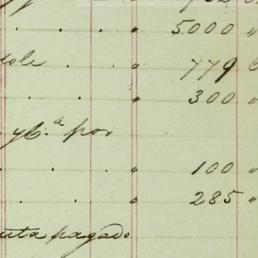 . . . " 5000 "
. . " 779
. . . " 300 "
y Cª por
. . . " 100 "
. . . " 285 "
pagado